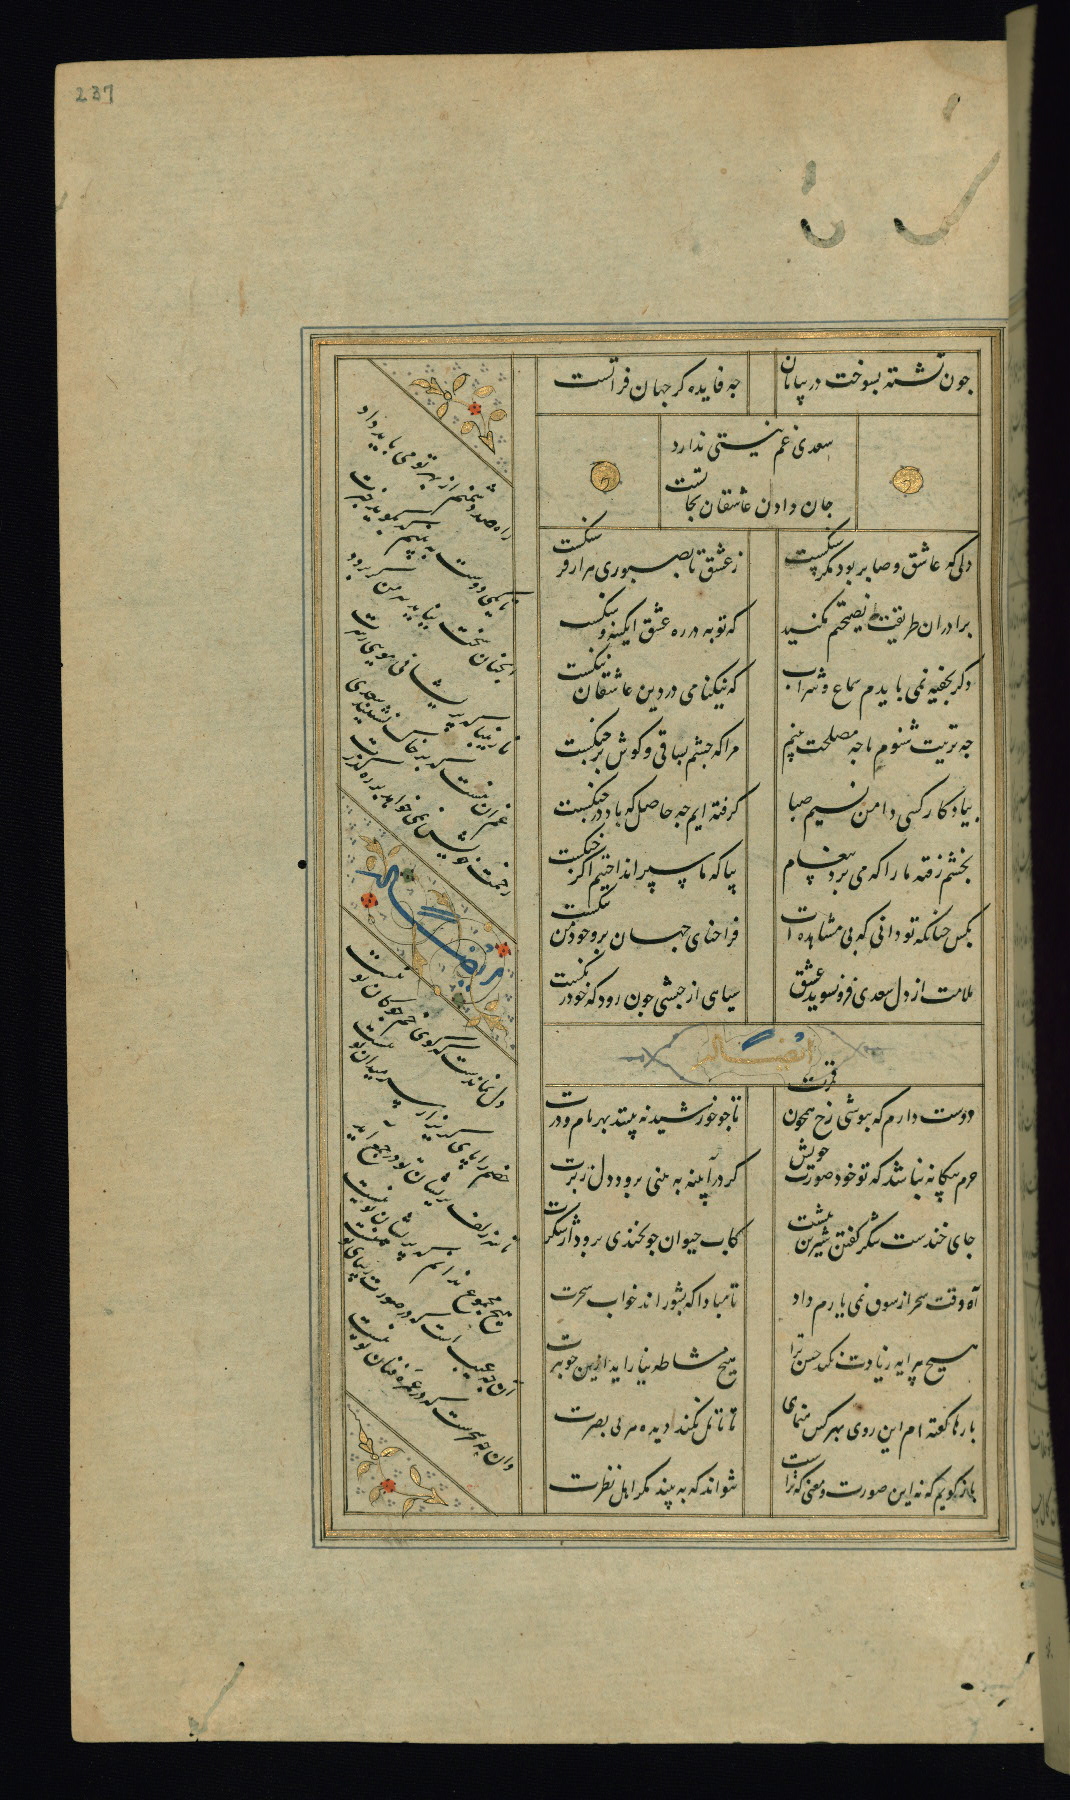 237
چون تشنه بسوخت در بیابان
چه فایده کر جهان فراتست
سعدی غم نیستی ندارد
جان دادن عاشقان نجاتست
دلی که عاشق و صابر بود مکر سنکست
زعشق تا بصبوری هزار فرسنکست
برادران طریقت نصیحتم مکنید
که توبه در ره عشق ابکینه و سنکست
دکر بخفیه نمی بایدم سماع و شراب
که نیکنامی در دین عاشقان ننکست
چه تربیت شنوم یا چه مصلحت بینم
مرا که چشم بساقی و کوش بر چنکست
بیادکار کسی دامن نسیم صبا
کرفته ایم چه حاصل که باد در چنکست
بخشم رفته ما را که می برد پیغام
بیا که ما سپر انداختیم اکر جنکست
بکش چنانکه تو دانی که بی مشاهده ات
فراخنای جهان بر وجود من تنکست
ملامت از دل سعدی فرو نشوید عشق
سیاهی از حبشی چون رود که خود رنکست
ایضا له
دوست دارم که بپوشی رخ همچون قمرت
تا چو خورشید نه بینند بهر بام و درت
جرم بیکانه نباشد که تو خود صورت خویش
کر در آینه به بینی برود دل زبرت
جای خندست سخن کفتن شیرین پیشت
کاب حیوان چو بخندی برود از شکرت
آه وقت سحر از سوی نمی یارم داد
تا مبادا که بشوراند خواب سحرت
هیچ پیرایه زیادت نکند حسن ترا
هیچ مشاطه نیاراید ازین خوبترت
بارها کفته ام این روی بهر کس منمای
تا تامل نکند دیده هر بی بصرت
باز کویم که نه این صورت و معنی که تراست
نتواند که به بیند مکر اهل نظرت
راه صد دشمنم از بهر تو می باید داد
تا یکی دوست به بینم که بکوید خبرت
آنچنان سخت نیاید سر من کر برود
نازنینا که پریشانی مویی ز سرت
غم آن نیست که بر خاک نشیند سعدی
زحمت خویش نمی خواهد بر رهکذرت
و ایضا له
دل نماندست که کوی خم چوکان تو نیست
خصم را پای کریز از سر میدان تو نیست
تا سر زلف پریشان تو در جمع آمد
هیچ مجموع ندانم که پریشان تو نیست
آن چه عیب است که در صورت زیبای تو هست
وان چه سحرست که در غمزه فتان تو نیست